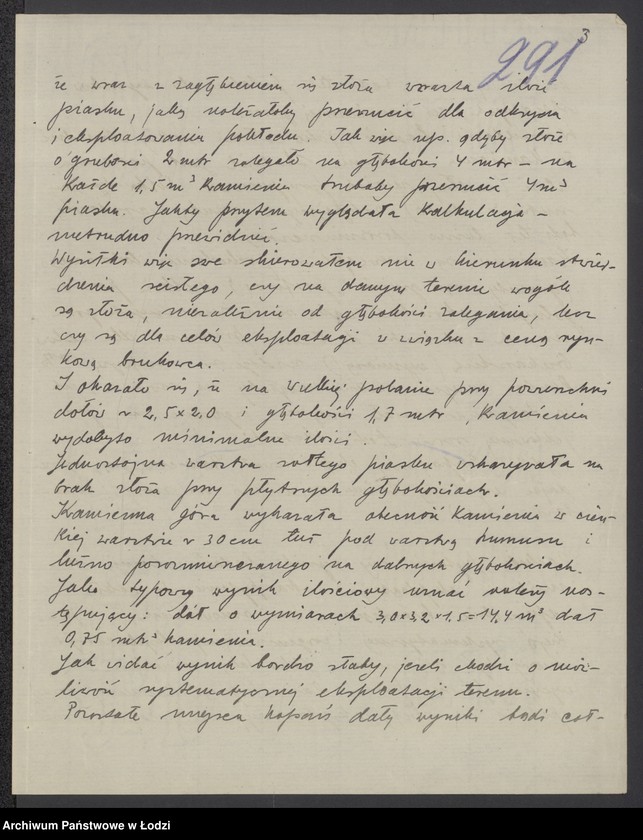 3
291
że wraz z zagłębieniem się złoża wzrasta ilość
piasku, jaką należałoby przerzucić dla odkrycia
i eksploatowania pokładu. Tak więc np. gdyby złoże
o grubości 2 mtr zalegało na głębokości 4 mtr – na
każde 1,5 m³ kamienia trzebaby przerzucić 4 m³
piasku. Jakby przytem wyglądała kalkulacja –
nietrudno przewidzieć.
Wysiłki więc swe skierowałem nie w kierunku stwier-
dzenia ścisłego, czy na danym terenie wogóle
są złoża, niezależnie od głębokości zalegania, lecz
czy są dla celów eksploatacji w związku z ceną ryn-
kową brukowca.
I okazało się, że na Wielkiej polanie przy powierzchni
dołów 2,5 x 2,0 i głębokości 1,7 mtr, kamienia
wydobyto minimalne ilości.
Jednostajna warstwa żółtego piasku wskazywała na
brak złoża przy płytszych głębokościach.
Kamienna góra wykazała obecność kamienia w cien-
kiej warstwie 30 cm tuż pod warstwą humusu i
luźno porozmieszczanego na dalszych głębokościach.
Jako typowy wynik ilościowy uznać należy nas-
tępujący: dół o wymiarach 3,0 x 3,2 x 1,5 = 14,4 m³ dał
0,75 mtr³ kamienia.
Jak widać wynik bardzo słaby, jeżeli chodzi o moż-
liwość systematycznej eksploatacji terenu.
Pozostałe miejsca kopań dały wyniki bądź cał-
Archiwum Państwowe w Łodzi